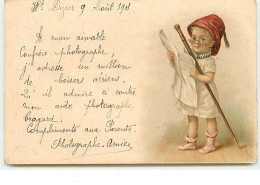 St Dizier 9 Août 1901
A mon aimable
Confrère photographe,
j'adresse un million
de baisers aériens.
Qu'il admire ci contre
mon aide photographe
bragard.
Compliments aux Parents.
Photographe